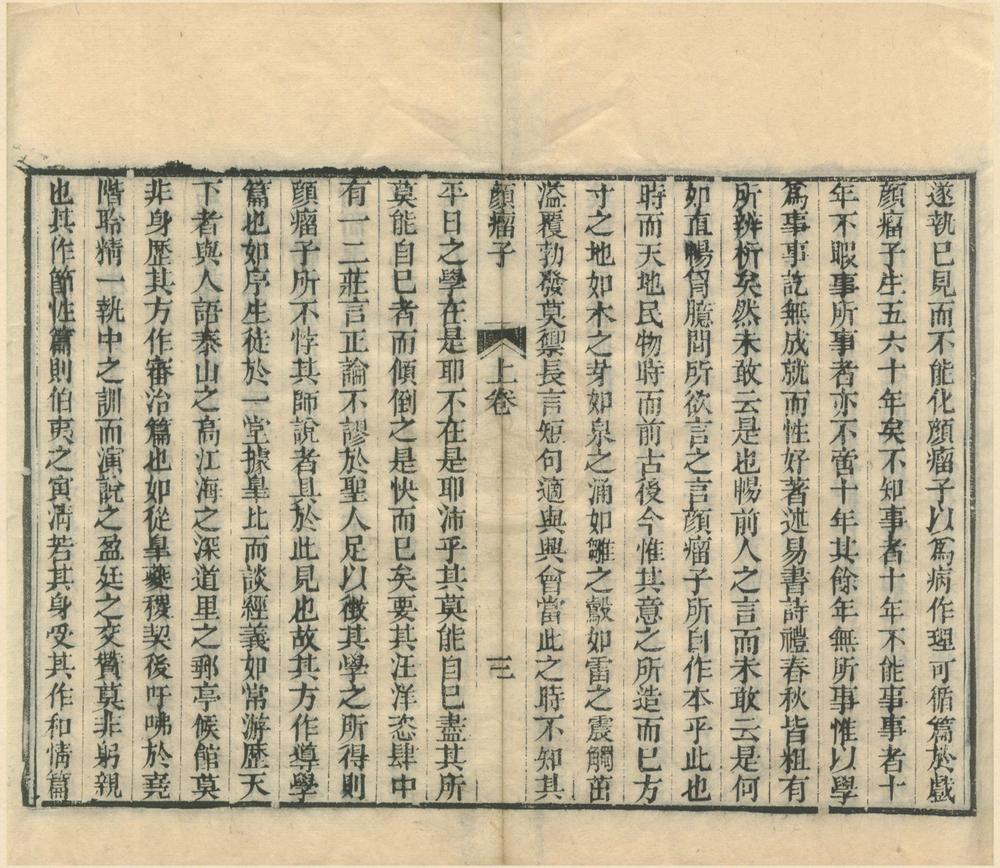 遂執已見而不能化顏瘤子以爲病作理可循篇於戲
顏瘤子生五六十年矣不知事者十年不能事事者十
年不暇事所事者亦不啻十年其餘年無所事惟以學
爲事事訖無成就而性好著述易書詩禮春秋皆粗有
所辨析矣然未敢云是也暢前人之言而未敢云是何
如直暢胷臆間所欲言之言顏瘤子所自作本乎此也
時而天地民物時而前古後今惟其意之所造而已方
寸之地如木之芽如泉之涌如雛之鷇如雷之震觸茁
溢覆勃發莫禦長言短句適與興會當此之時不知其
顏瘤子 上卷 三
平日之學在是耶不在是耶沛乎其莫能自已盡其所
莫能自已者而傾倒之是快而已矣要其汪洋恣肆中
有一二莊言正論不謬於聖人足以徵其學之所得則
顏瘤子所不悖其師說者具於此見也故其方作導學
篇也如序生徒於一堂據臯比而談經義如常游歷天
下者與人語泰山之高江海之深道里之郵亭候館莫
非身歷其方作審治篇也如從臯夔稷契後吁咈於堯
階聆精一執中之訓而演說之盈廷之交贊莫非躬親
也其作節性篇則伯夷之寅淸若其身受其作和情篇